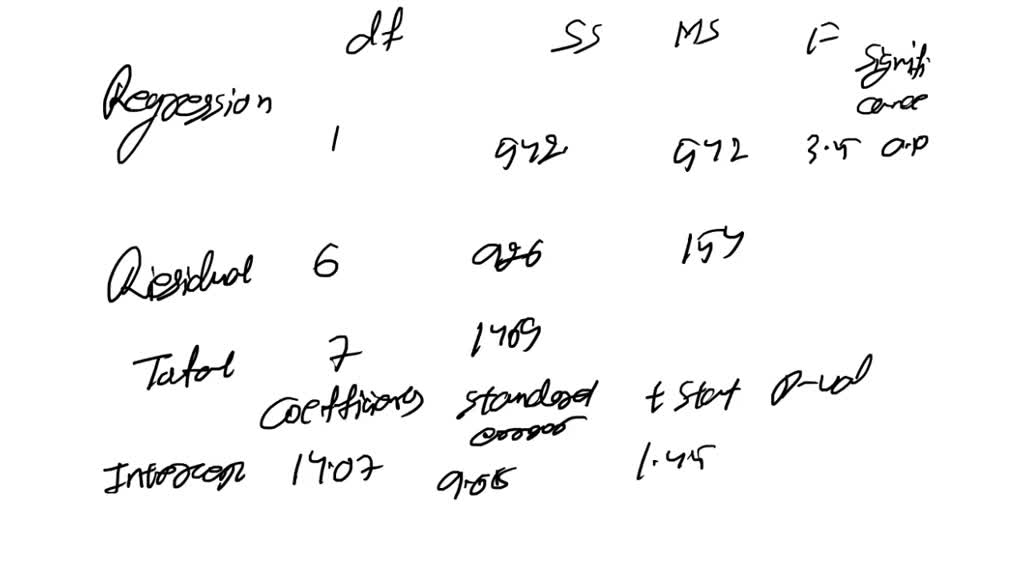 df SS MS F Signifi
cance
Regression
1 542 542 3.5 0.0
Residual 6 926 154
Total 7 1469
Coefficients standard t stat P-val
error
Intercep 14.07 9.65 1.45